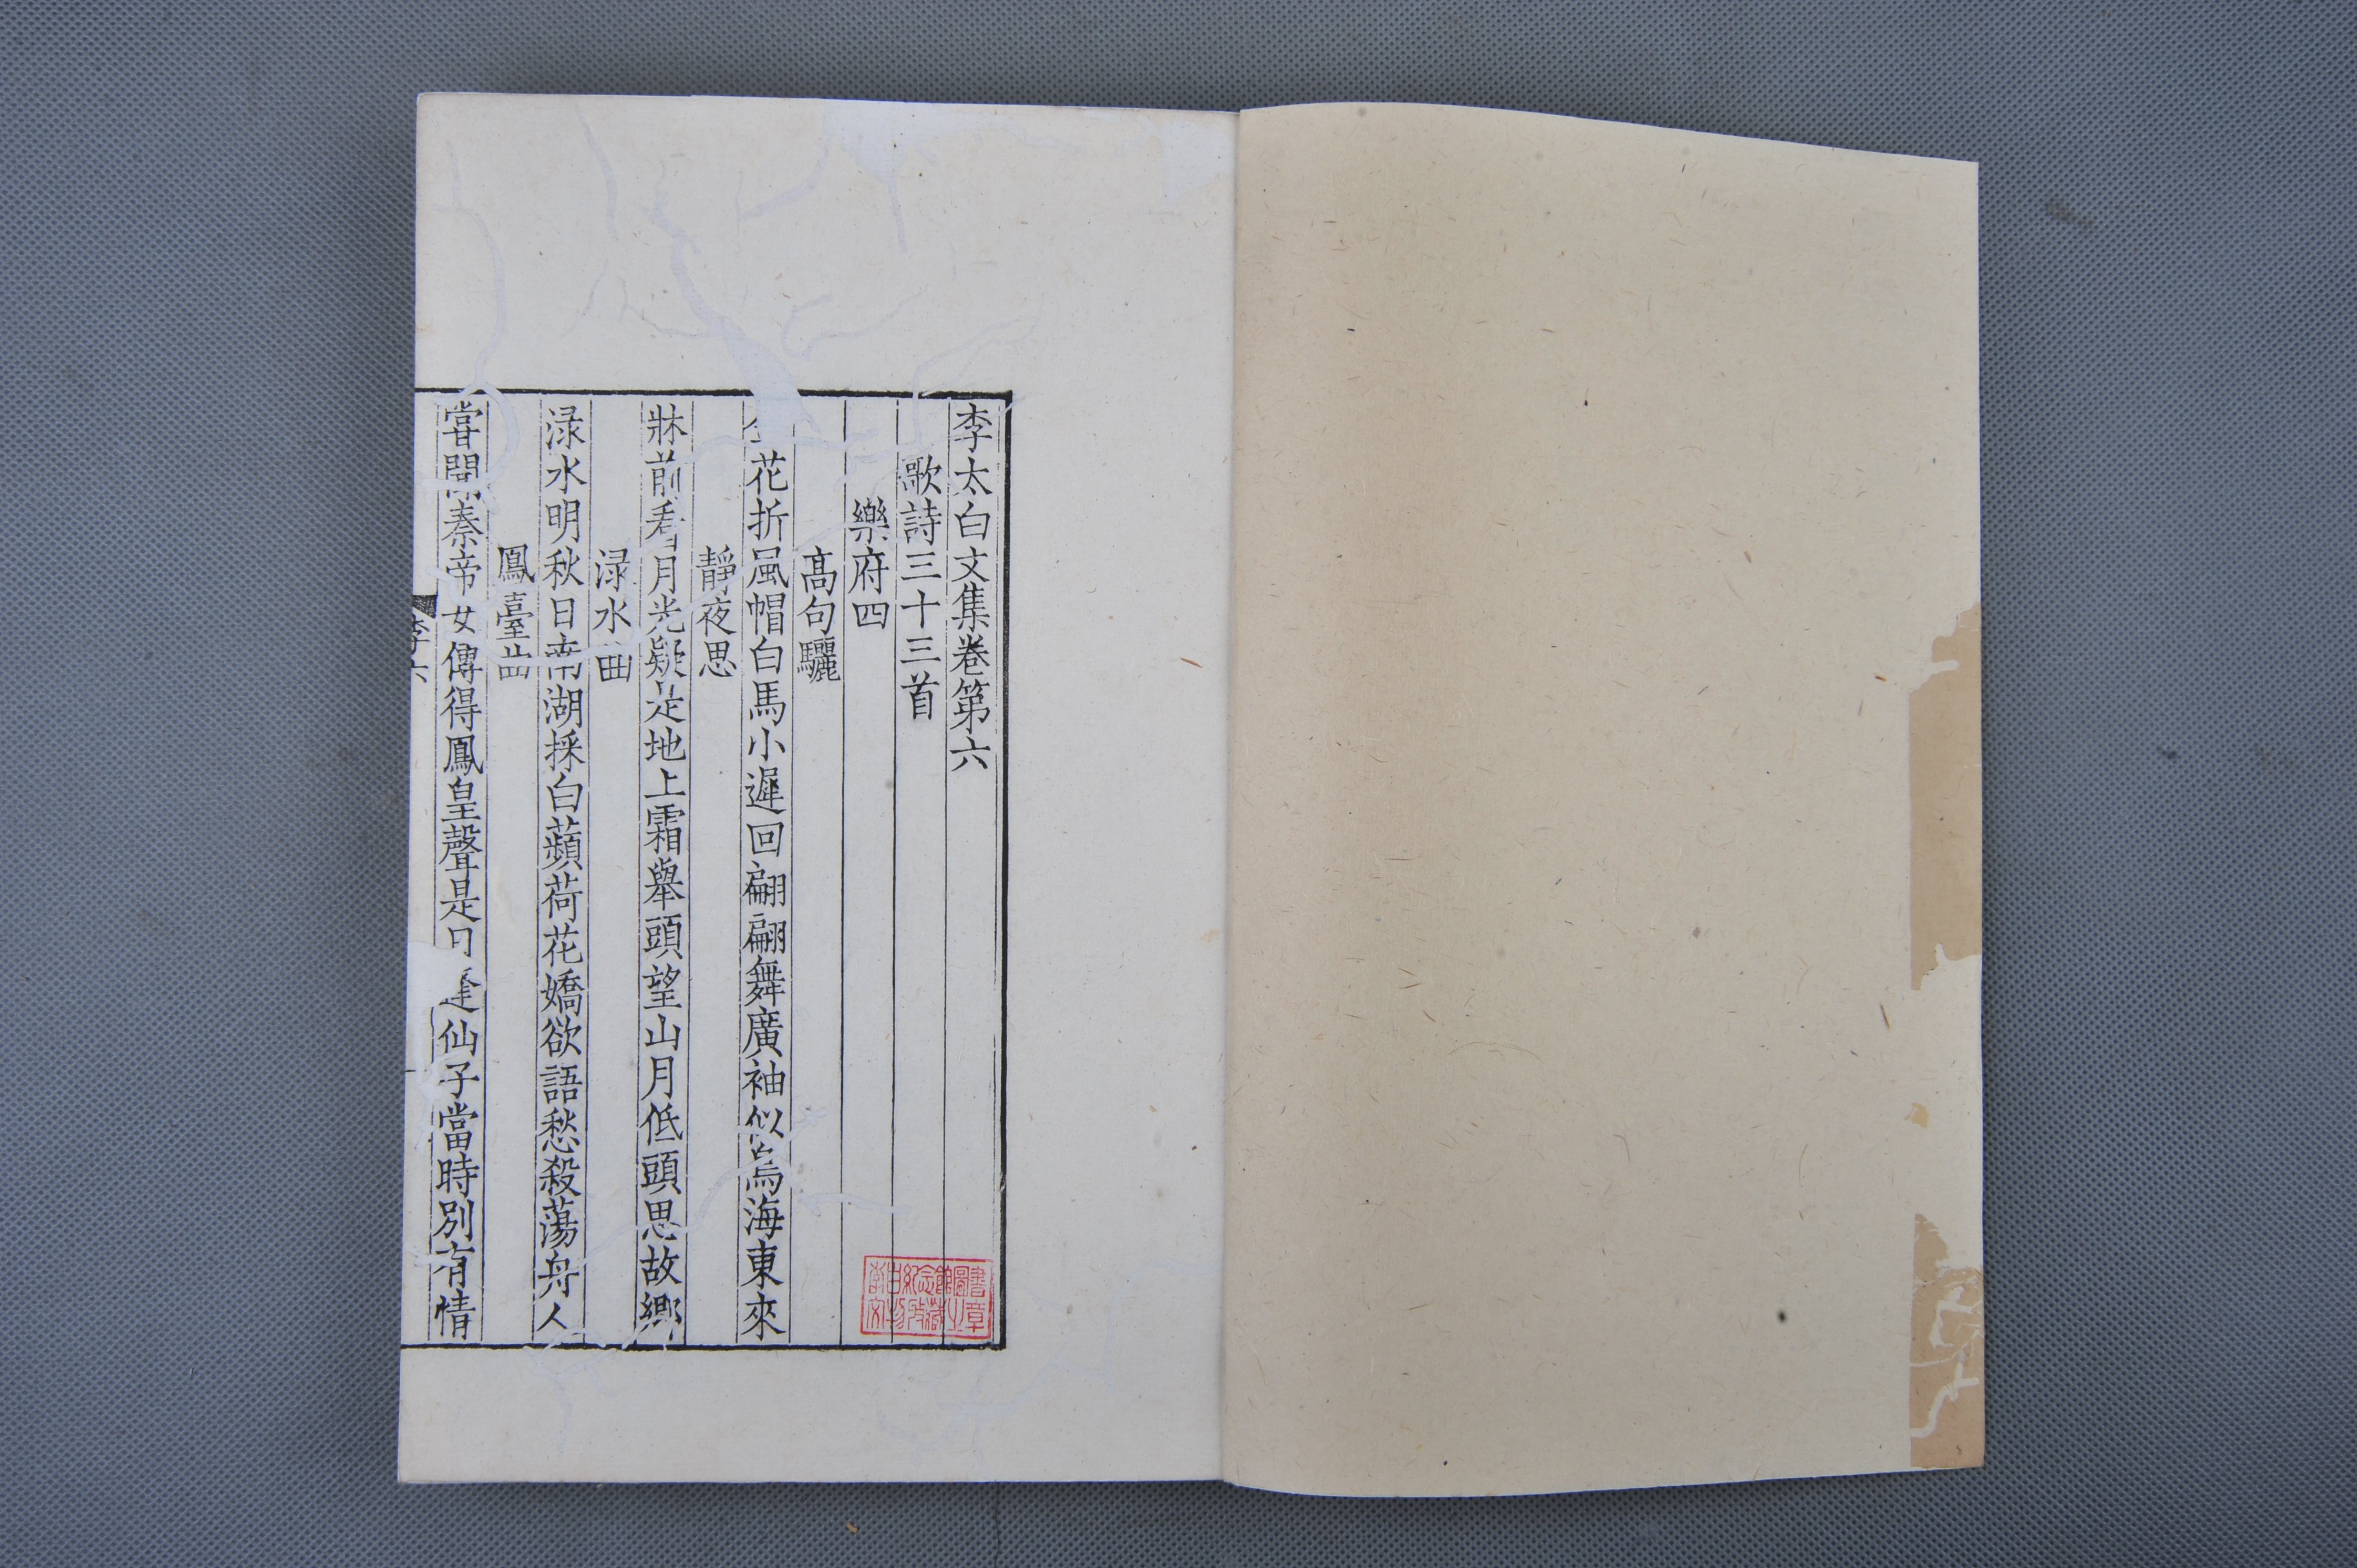 李太白文集卷第六
歌詩三十三首
樂府四
髙句驪
花折風帽白馬小遲回翩翩舞廣袖似鳥海東來
靜夜思
牀前看月光疑是地上霜舉頭望山月低頭思故鄉
渌水曲
渌水明秋日南湖採白蘋荷花嬌欲語愁殺蕩舟人
鳳臺曲
嘗聞秦帝女傳得鳳皇聲是日逢仙子當時別有情
李六